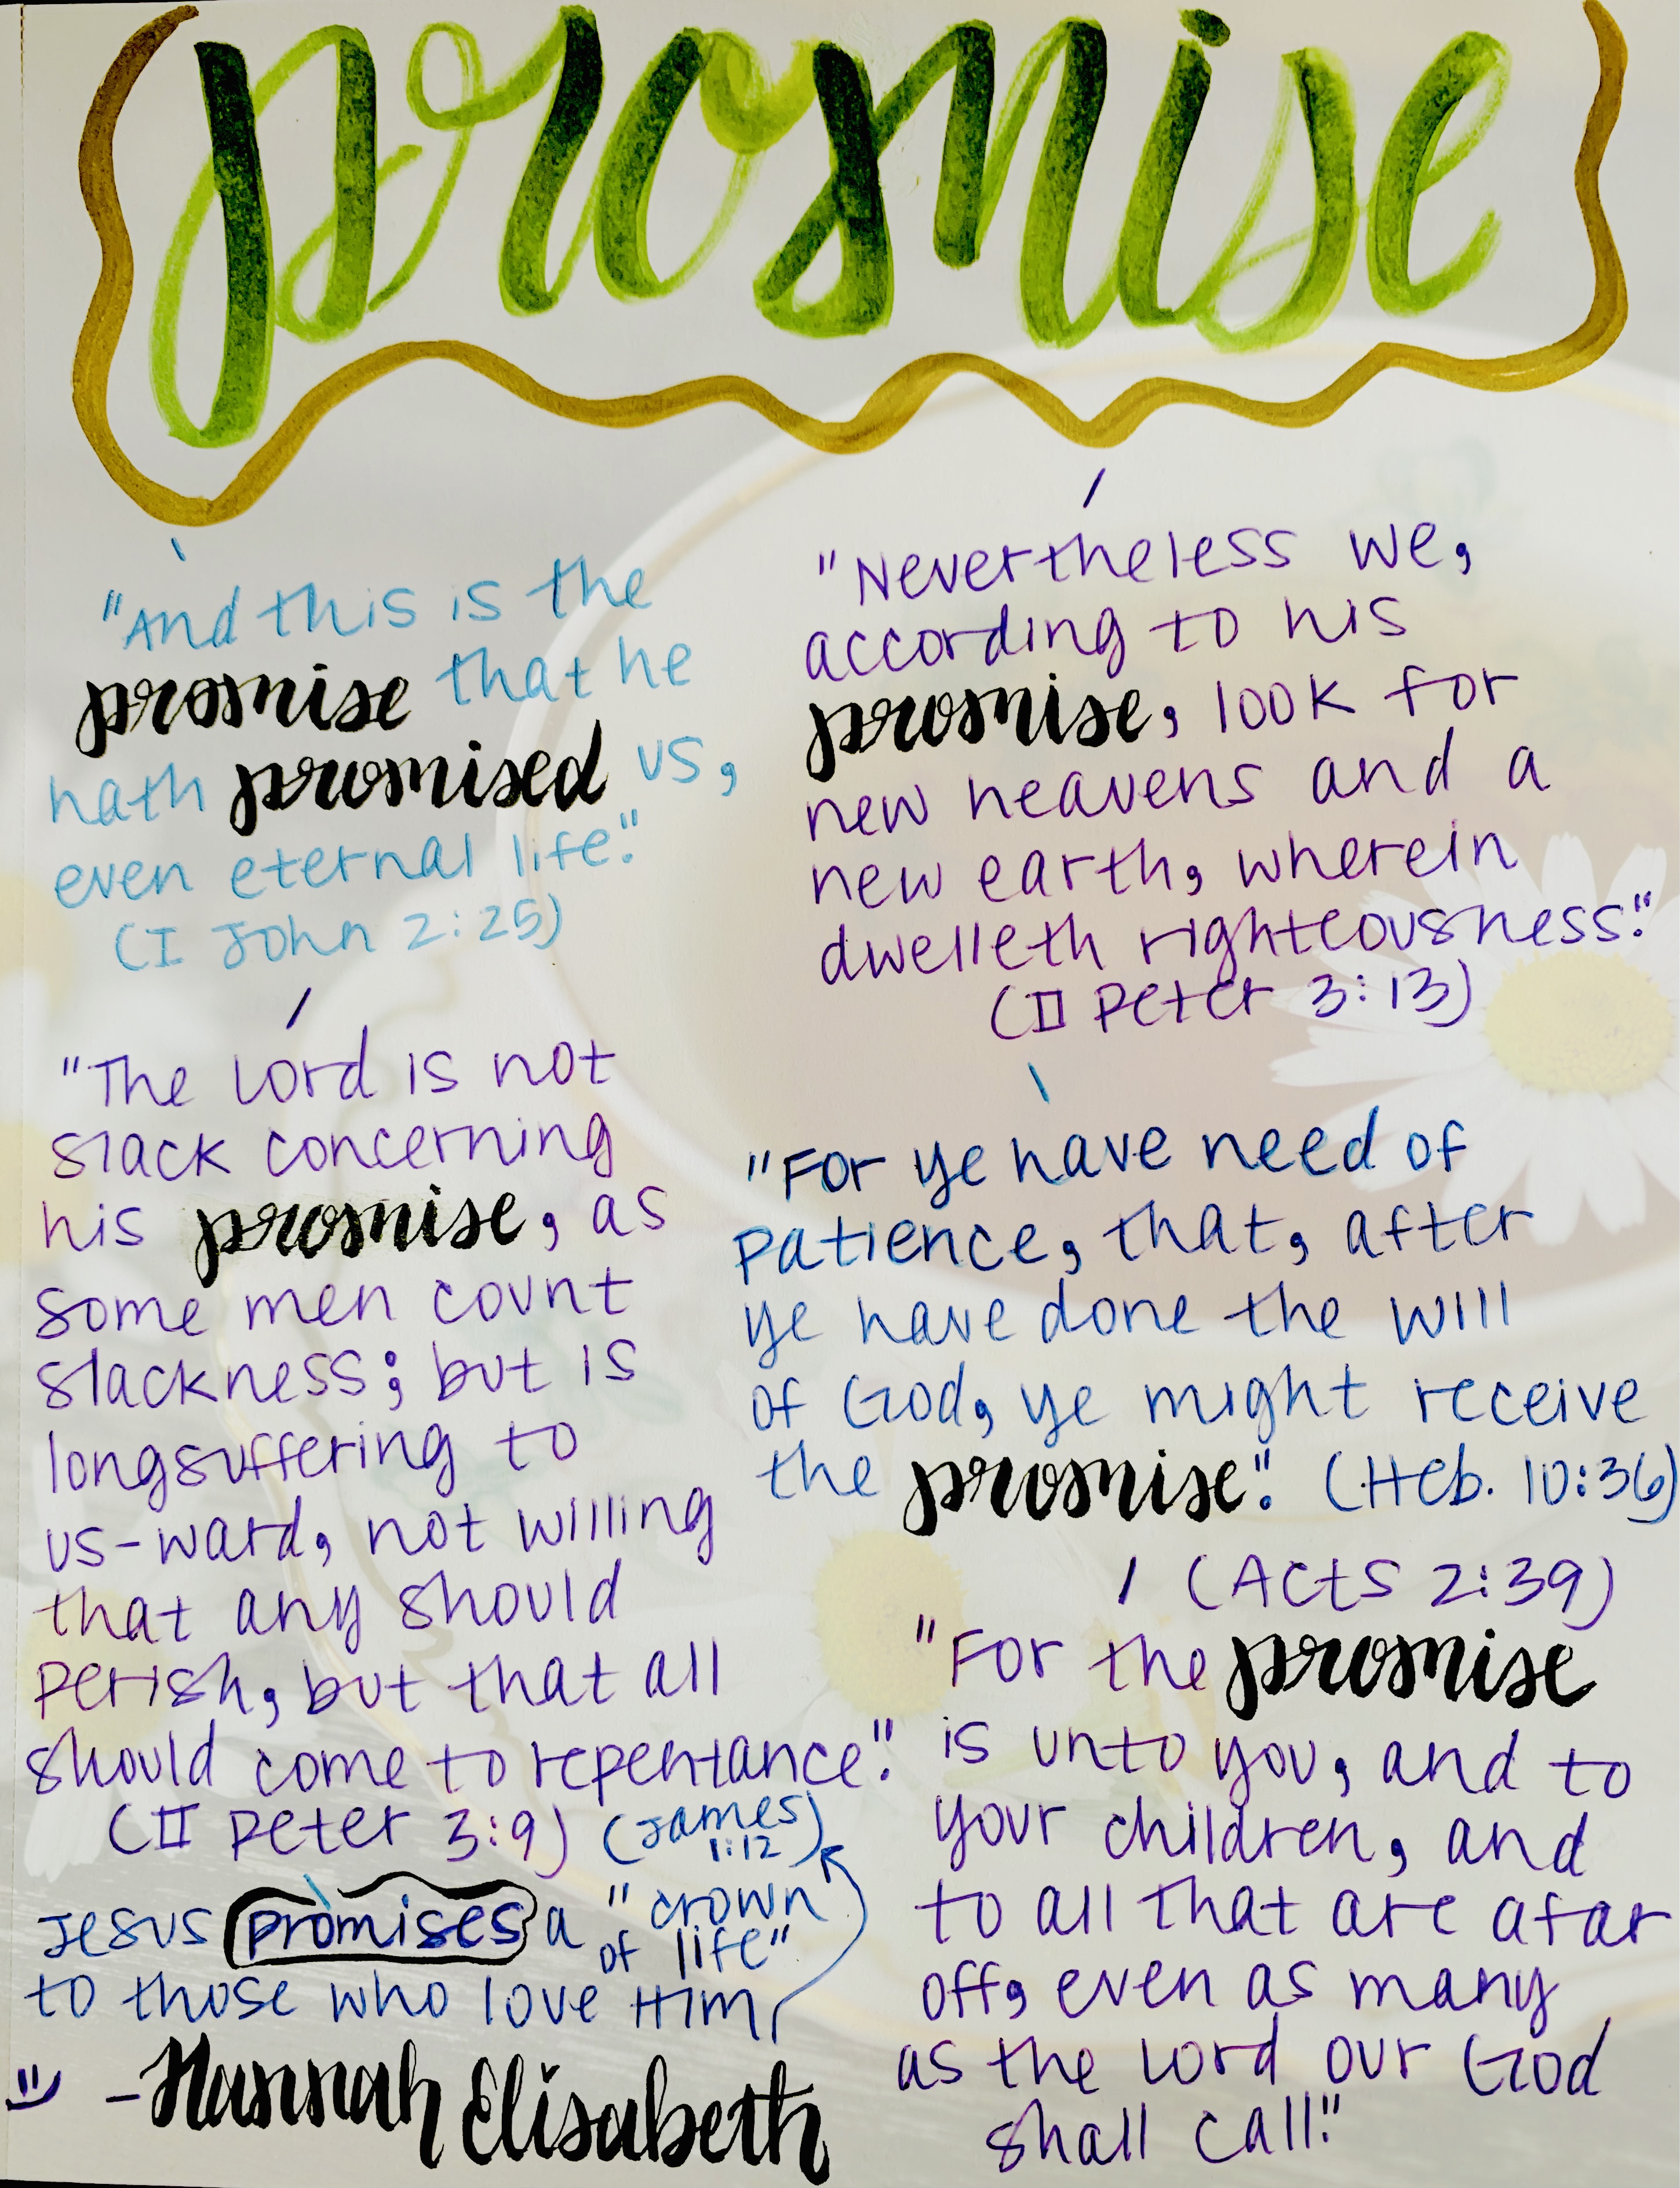 promise
"And this is the
promise that he
hath promised us,
even eternal life."
(I John 2:25)
"The Lord is not
slack concerning
his promise, as
some men count
slackness; but is
longsuffering to
us-ward, not willing
that any should
perish, but that all
should come to repentance."
(II Peter 3:9) (James
1:12)
Jesus promises a "crown
of life"
to those who love Him
-Hannah Elisabeth
"Nevertheless we,
according to his
promise, look for
new heavens and a
new earth, wherein
dwelleth righteousness."
(II Peter 3:13)
"For ye have need of
patience, that, after
ye have done the will
of God, ye might receive
the promise." (Heb. 10:36)
(Acts 2:39)
"For the promise
is unto you, and to
your children, and
to all that are afar
off, even as many
as the Lord our God
shall call."